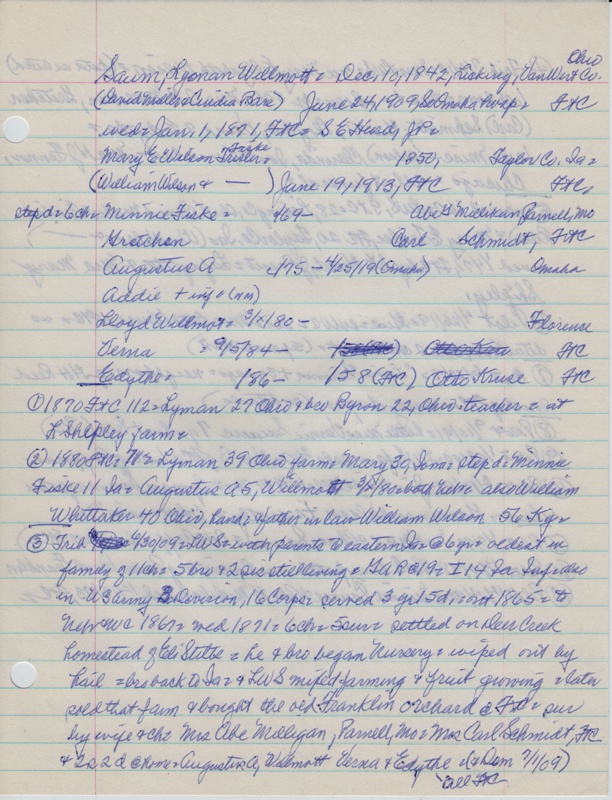 Ohio
Saum, Lyman Willmott = Dec, 10, 1842, Licking, Van Wert Co.
(David Miller & Cividia Bare) June 24, 1909, So Omaha hosp = FtC
wed = Jan, 1, 1871, FtC = S E Hurd, JP =
Fiske
Mary E Wilson = 1850, Taylor Co. Ia =
(William Wilson & — ) June 19, 1913, FtC FtC,
step d = 6ch = Minnie Fiske = /69 - Abe Millikan, Parnell, Mo
Gretchen Carl Schmidt, FtC
Augustus A c/75 - 4/25/19 (Omaha) Omaha
Addie + inf 0 (nm)
Lloyd Willmott = 3/x/80 - Florence
Verna = 9/5/84 - FtC
Edythe = /86 - /58 (FtC) Otto Kruse FtC
① 1870 FtC 112 = Lyman 27 Ohio & bro Byron 22, Ohio = teacher = at
L Shipley farm =
② 1880 FtC 7W = Lyman 39 Ohio farm = Mary 39 Iowa = step d = Minnie
Fiske 11 Ia = Augustus A 5, Willmott 3/x/80 = both Neb = also William
Whittaker 40 Ohio, hand = & father in law William Wilson 56 Ky =
③ Trib 6/30/09 = LWS = with parents to eastern Ia = @ 6 yr = oldest in
family of 11 ch = 5 bro & 2 sis still living = GAR @ 19 = I 14 Ia Inf = also
in US army Division, 16 Corps = served 3 yr 5 d, = out 1865 = to
Neb & WC 1867 = wed 1871 = 6ch = 5 surv = settled on Deer Creek
homestead of Eli Stilts = he & bro began Nursery = wiped out by
hail = bro back to Ia = & LWS mixed farming & fruit growing = later
sold that farm & bought the old Franklin orchard @ FtC = sur
by wife & ch = Mrs Abe Milligan, Parnell, Mo = Mrs Carl Schmidt, FtC
& 2s 2d @ home = Augustus A, Willmott Verna & Edythe (d & Dem 7/1/09)
all FtC